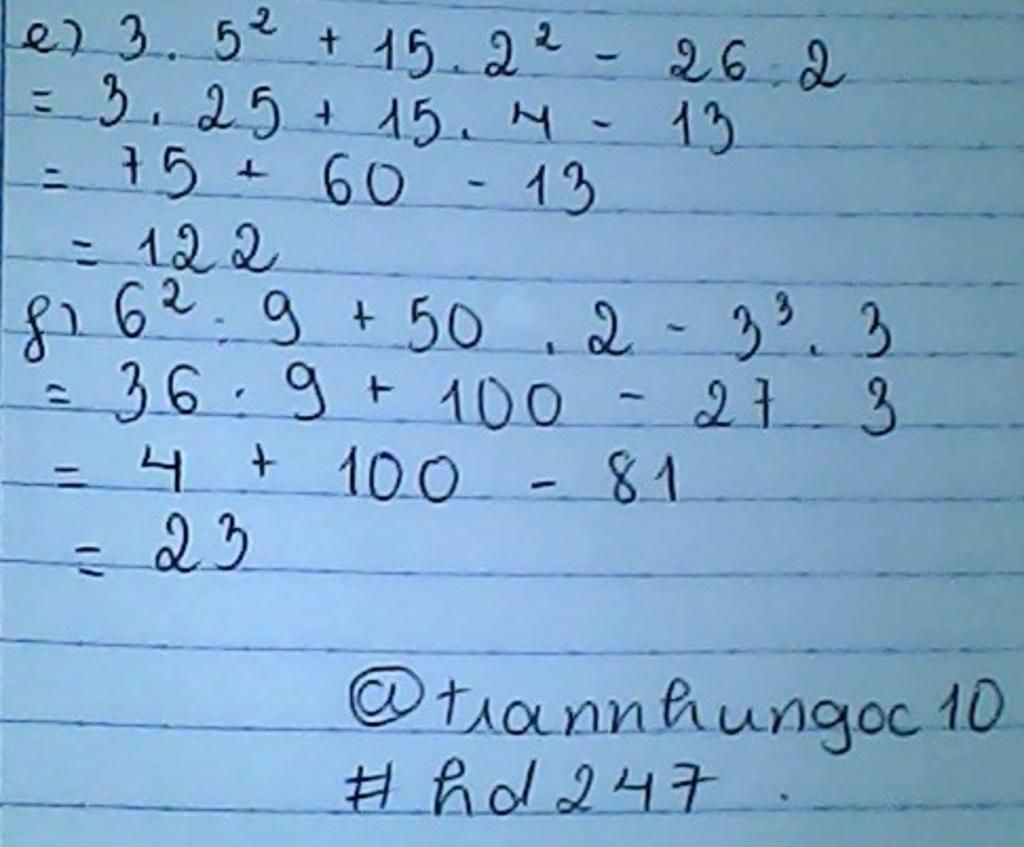 e) 3 . 5² + 15 . 2² - 26 : 2
= 3 . 25 + 15 . 4 - 13
= 75 + 60 - 13
= 122
f) 6² : 9 + 50 . 2 - 3³ . 3
= 36 : 9 + 100 - 27 3
= 4 + 100 - 81
= 23
@trannhungoc10
#hd247